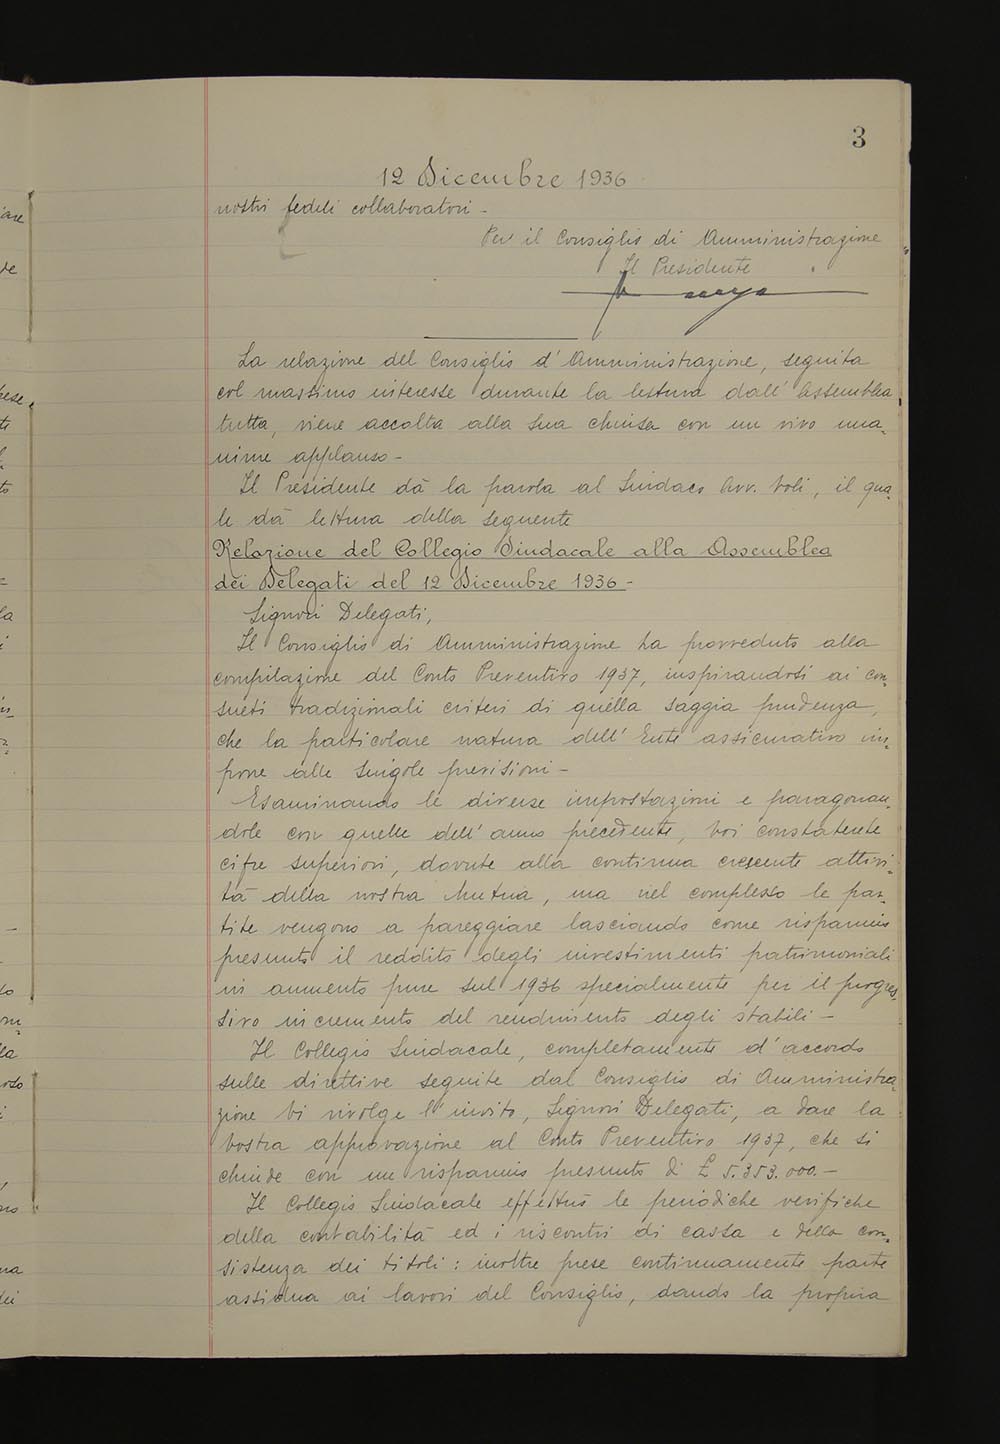 3
12 Dicembre 1936
nostri fedeli collaboratori -
Per il Consiglio di Amministrazione
Il Presidente
La relazione del Consiglio d'Amministrazione, seguita
col massimo interesse durante la lettura dall'Assemblea
tutta, viene accolta alla sua chiusa con un vivo una-
nime applauso -
Il Presidente dà la parola al Sindaco Avv. Voli, il qua-
le dà lettura della seguente
Relazione del Collegio Sindacale alla Assemblea
dei Delegati del 12 Dicembre 1936 -
Signori Delegati,
Il Consiglio di Amministrazione ha provveduto alla
compilazione del Conto Preventivo 1937, inspirandosi ai con-
sueti tradizionali criteri di quella saggia prudenza,
che la particolare natura dell'Ente assicurativo im-
pone alle singole previsioni -
Esaminando le diverse impostazioni e paragonan-
dole con quelle dell'anno precedente, Voi constaterete
cifre superiori, dovute alla continua crescente attivi-
tà della nostra Mutua, ma nel complesso le par-
tite vengono a pareggiare lasciando come risparmio
presunto il reddito degli investimenti patrimoniali
in aumento pure sul 1936 specialmente per il progres-
sivo incremento del rendimento degli stabili -
Il Collegio Sindacale, completamente d'accordo
sulle direttive seguite dal Consiglio di Amministra-
zione Vi rivolge l'invito, Signori Delegati, a dare la
Vostra approvazione al Conto Preventivo 1937, che si
chiude con un risparmio presunto di £ 5.353.000. -
Il Collegio Sindacale effettuò le periodiche verifiche
della contabilità ed i riscontri di cassa e della con-
sistenza dei titoli: inoltre prese continuamente parte
assidua ai lavori del Consiglio, dando la propria